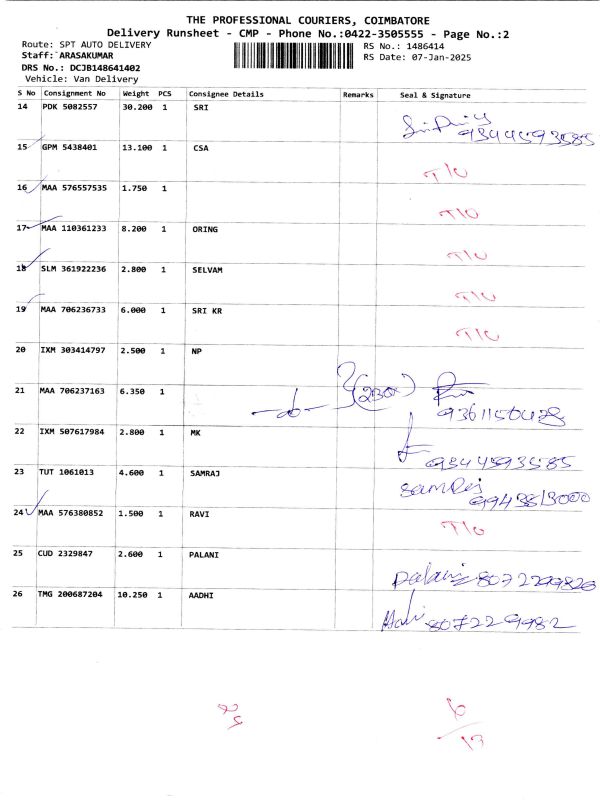 THE PROFESSIONAL COURIERS, COIMBATORE
Delivery Runsheet - CMP - Phone No.:0422-3505555 - Page No.:2
Route: SPT AUTO DELIVERY
RS No.: 1486414
Staff: ARASAKUMAR
RS Date: 07-Jan-2025
DRS No.: DCJB148641402
Vehicle: Van Delivery
S No Consignment No Weight PCS Consignee Details Remarks Seal & Signature
14 PDK 5082557 30.200 1 SRI
9344593585
15 GPM 5438401 13.100 1 CSA
T/O
16 MAA 576557535 1.750 1
T/O
17 MAA 110361233 8.200 1 ORING
T/O
18 SLM 361922236 2.800 1 SELVAM
T/O
19 MAA 706236733 6.000 1 SRI KR
T/O
20 IXM 303414797 2.500 1 NP
21 MAA 706237163 6.350 1
22 IXM 507617984 2.800 1 MK
9344593585
23 TUT 1061013 4.600 1 SAMRAJ
24 MAA 576380852 1.500 1 RAVI
T/O
25 CUD 2329847 2.600 1 PALANI
Palani
26 TMG 200687204 10.250 1 AADHI
8072299982